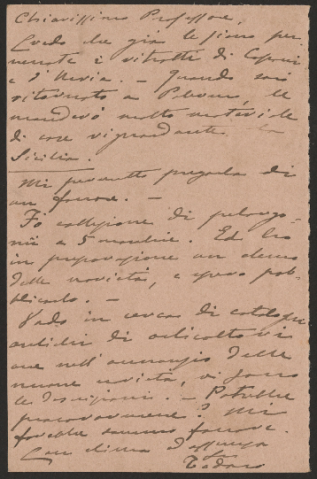 Chiarissimo Professore,
Credo che già le siano per-
venute i vitrotti di Caponi
e d'Stevia. — Quando sarò
ritornato a Palermo, le
manderò molto materiale
di cose riguardante la
Sicilia.
Mi permetto pregarla di
un favore. —
Fo collezione di pelargo-
nii a 5 . Ed ho
in preparazione un elenco
delle novità, e spero pub-
blicarlo. —
Vado in cerca di cataloghi
antichi di orticoltori
ove nell'annunzio delle
nuove novità, vi sono
le descrizioni. — Potrebbe
procurarmene? Mi
farebbe sommo favore.
Con stima
Todaro